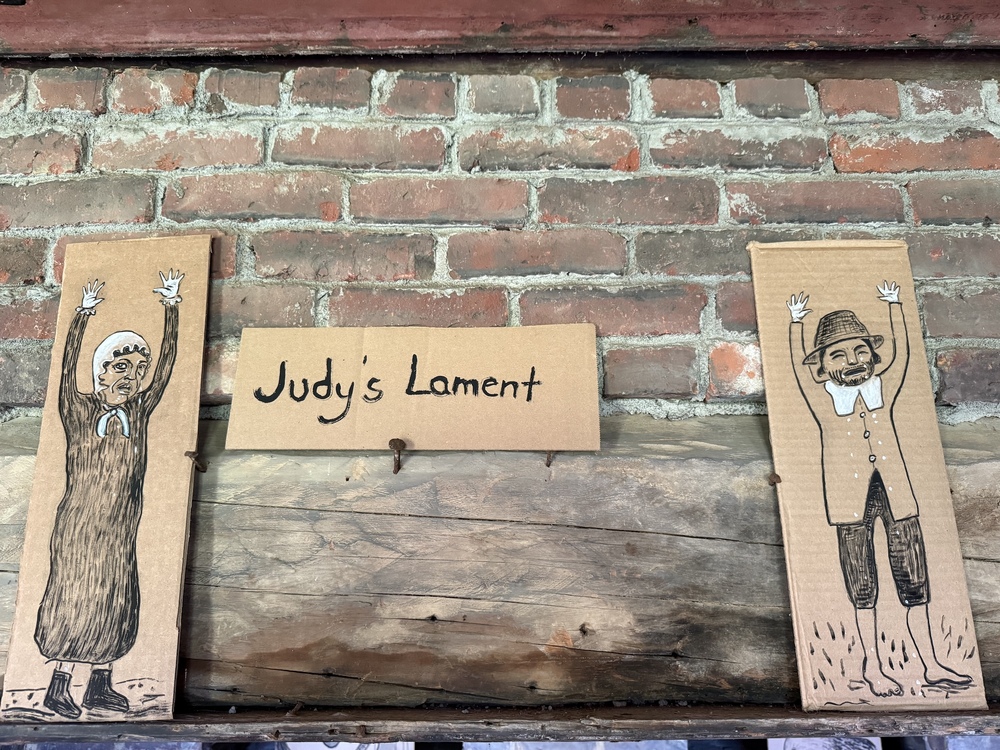 Judy's Lament